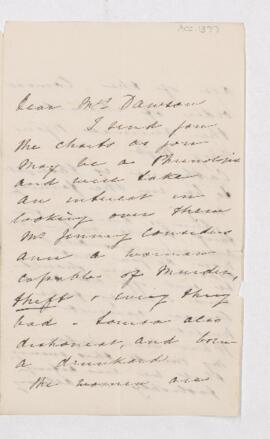 Acc. 1377
Dear Mrs Dawson
I send you
the charts as you
may be a Phrenologist
and will take
an interest in
looking over them
Mr Jenning Considers
ann a woman
capable of Murder,
theft & every thing
bad - Louisa also
dishonest, and born
a drunkard.
The women are